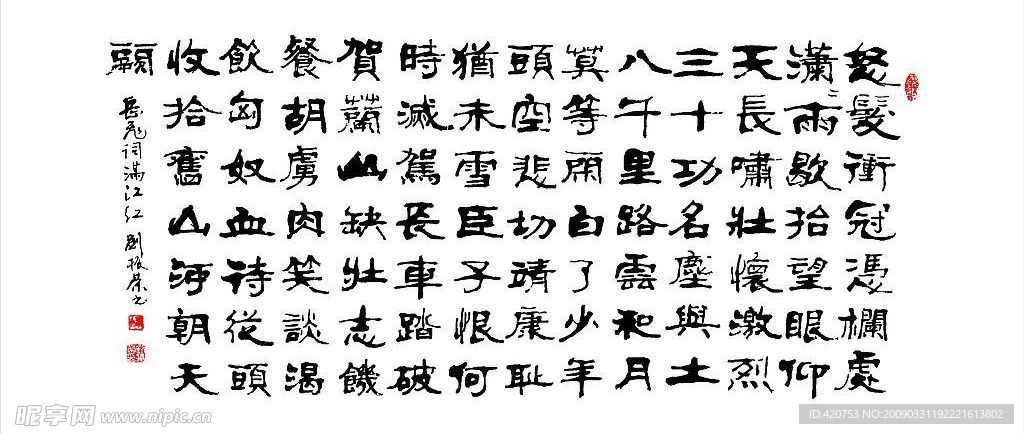 怒髮衝冠憑欄處
瀟〻雨歇抬望眼仰
天長嘯壯懷激烈
三十功名塵與土
八千里路雲和月
莫等閑白了少年
頭空悲切靖康耻
猶未雪臣子恨何
時滅駕長車踏破
賀蘭山缺壯志饑
餐胡虜肉笑談渴
飲匈奴血待從頭
收拾舊山河朝天
闕
岳飛词满江红 劉振荣书
昵享网 www.nipic.cn
ID:420753 NO:20090331192221613802